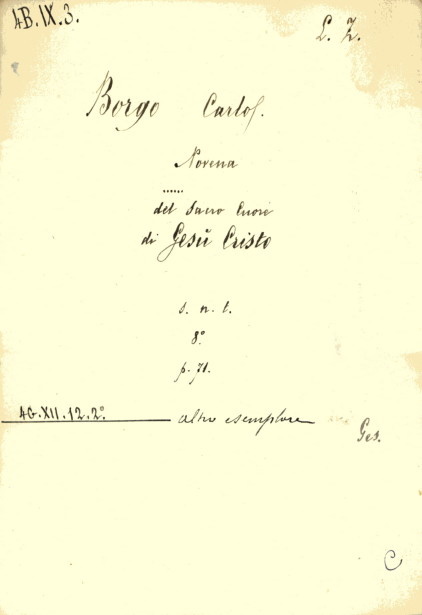 4B.IX.3.
L. Z.
Borgo Carlo S.
Novena
......
del Sacro Cuore
di Gesù Cristo
s. n. t.
8°
p. 71.
4G.XII.12.2° altro esemplare
Ges.
C